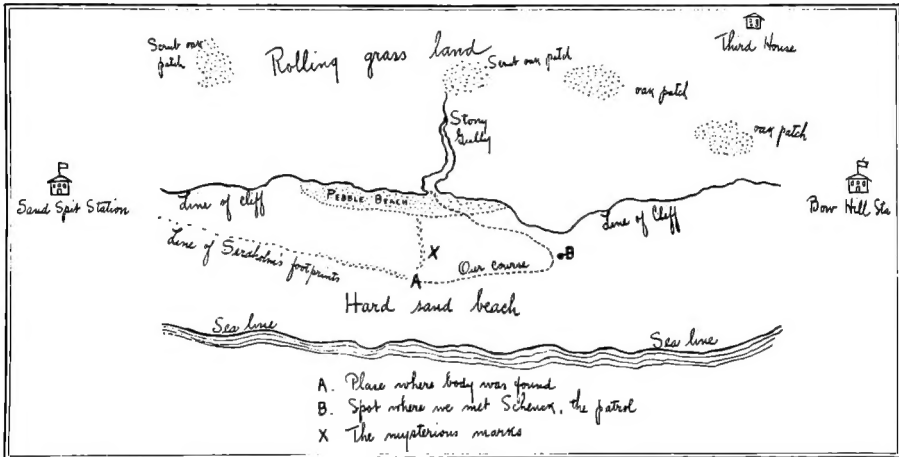 Third House
Scrub oak
patch
Rolling grass land
Scrub oak patch
oak patch
Stony
Gully
oak patch
Sand Spit Station
Line of Cliff
PEBBLE BEACH
Line of Cliff
Bow Hill Sta
Line of Serdholm's footprints
X
B
Our course
A
Hard sand beach
Sea line
Sea line
A. Place where body was found
B. Spot where we met Schenck, the patrol
X The mysterious marks